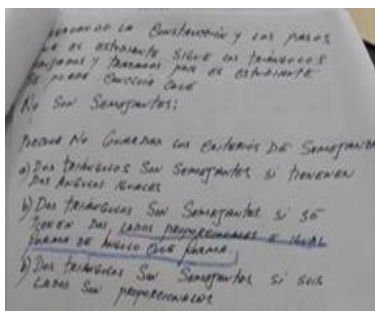 la Construcción y los pasos
que el estudiante sigue los triángulos
y trazados por el estudiante
se puede concluir que
No Son Semejantes:
Porque No Guardan los Criterios DE Semejanza
a) Dos triángulos Son Semejantes si tienenen
Dos Angulos iguales
b) Dos triángulos Son Semejantes si se
tienen Dos lados proporcionales e igual
forma de Angulo que forma.
b) Dos triángulos Son Semejantes si sus
Lados Son proporcionales